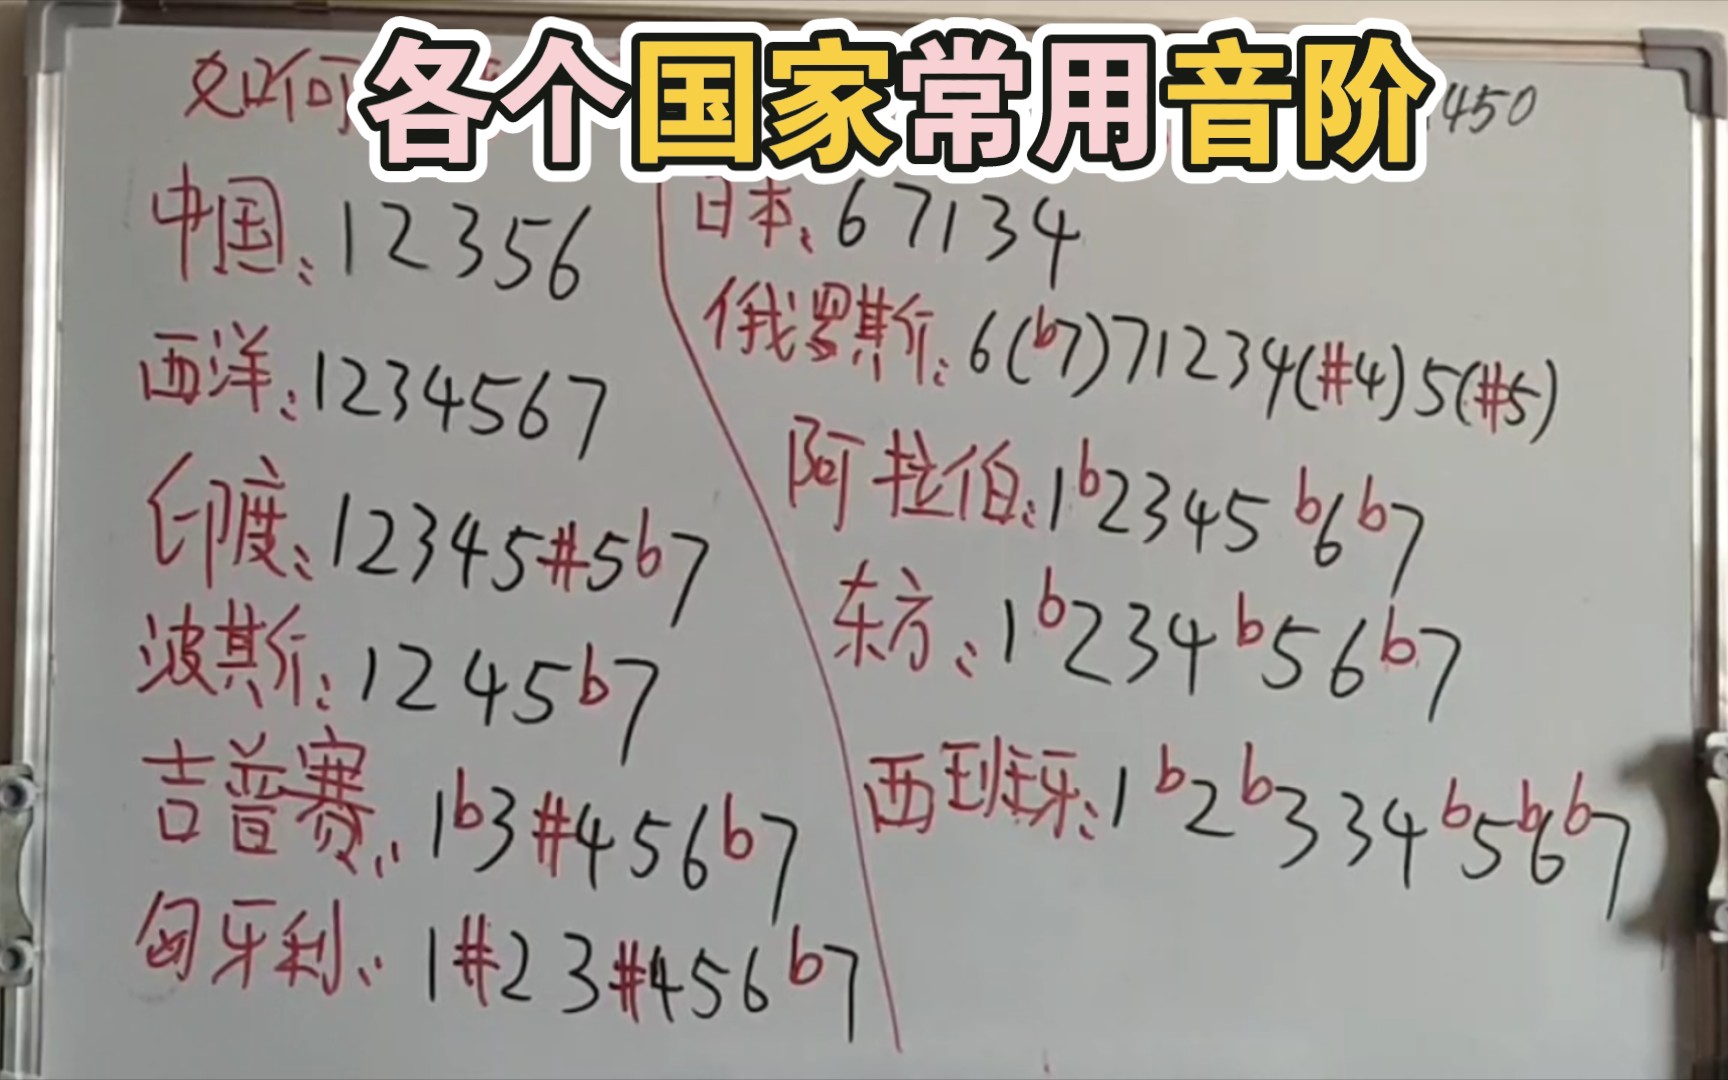 各个国家常用音阶
如何
450
中国:12356
西洋:1234567
印度:12345#5b7
波斯:1245b7
吉普赛:1b3#456b7
匈牙利:1#23#456b7
日本:67134
俄罗斯:6(b7)71234(#4)5(#5)
阿拉伯:1b2345b6b7
东方:1b234b56b7
西班牙:1b2b334b5b6b7